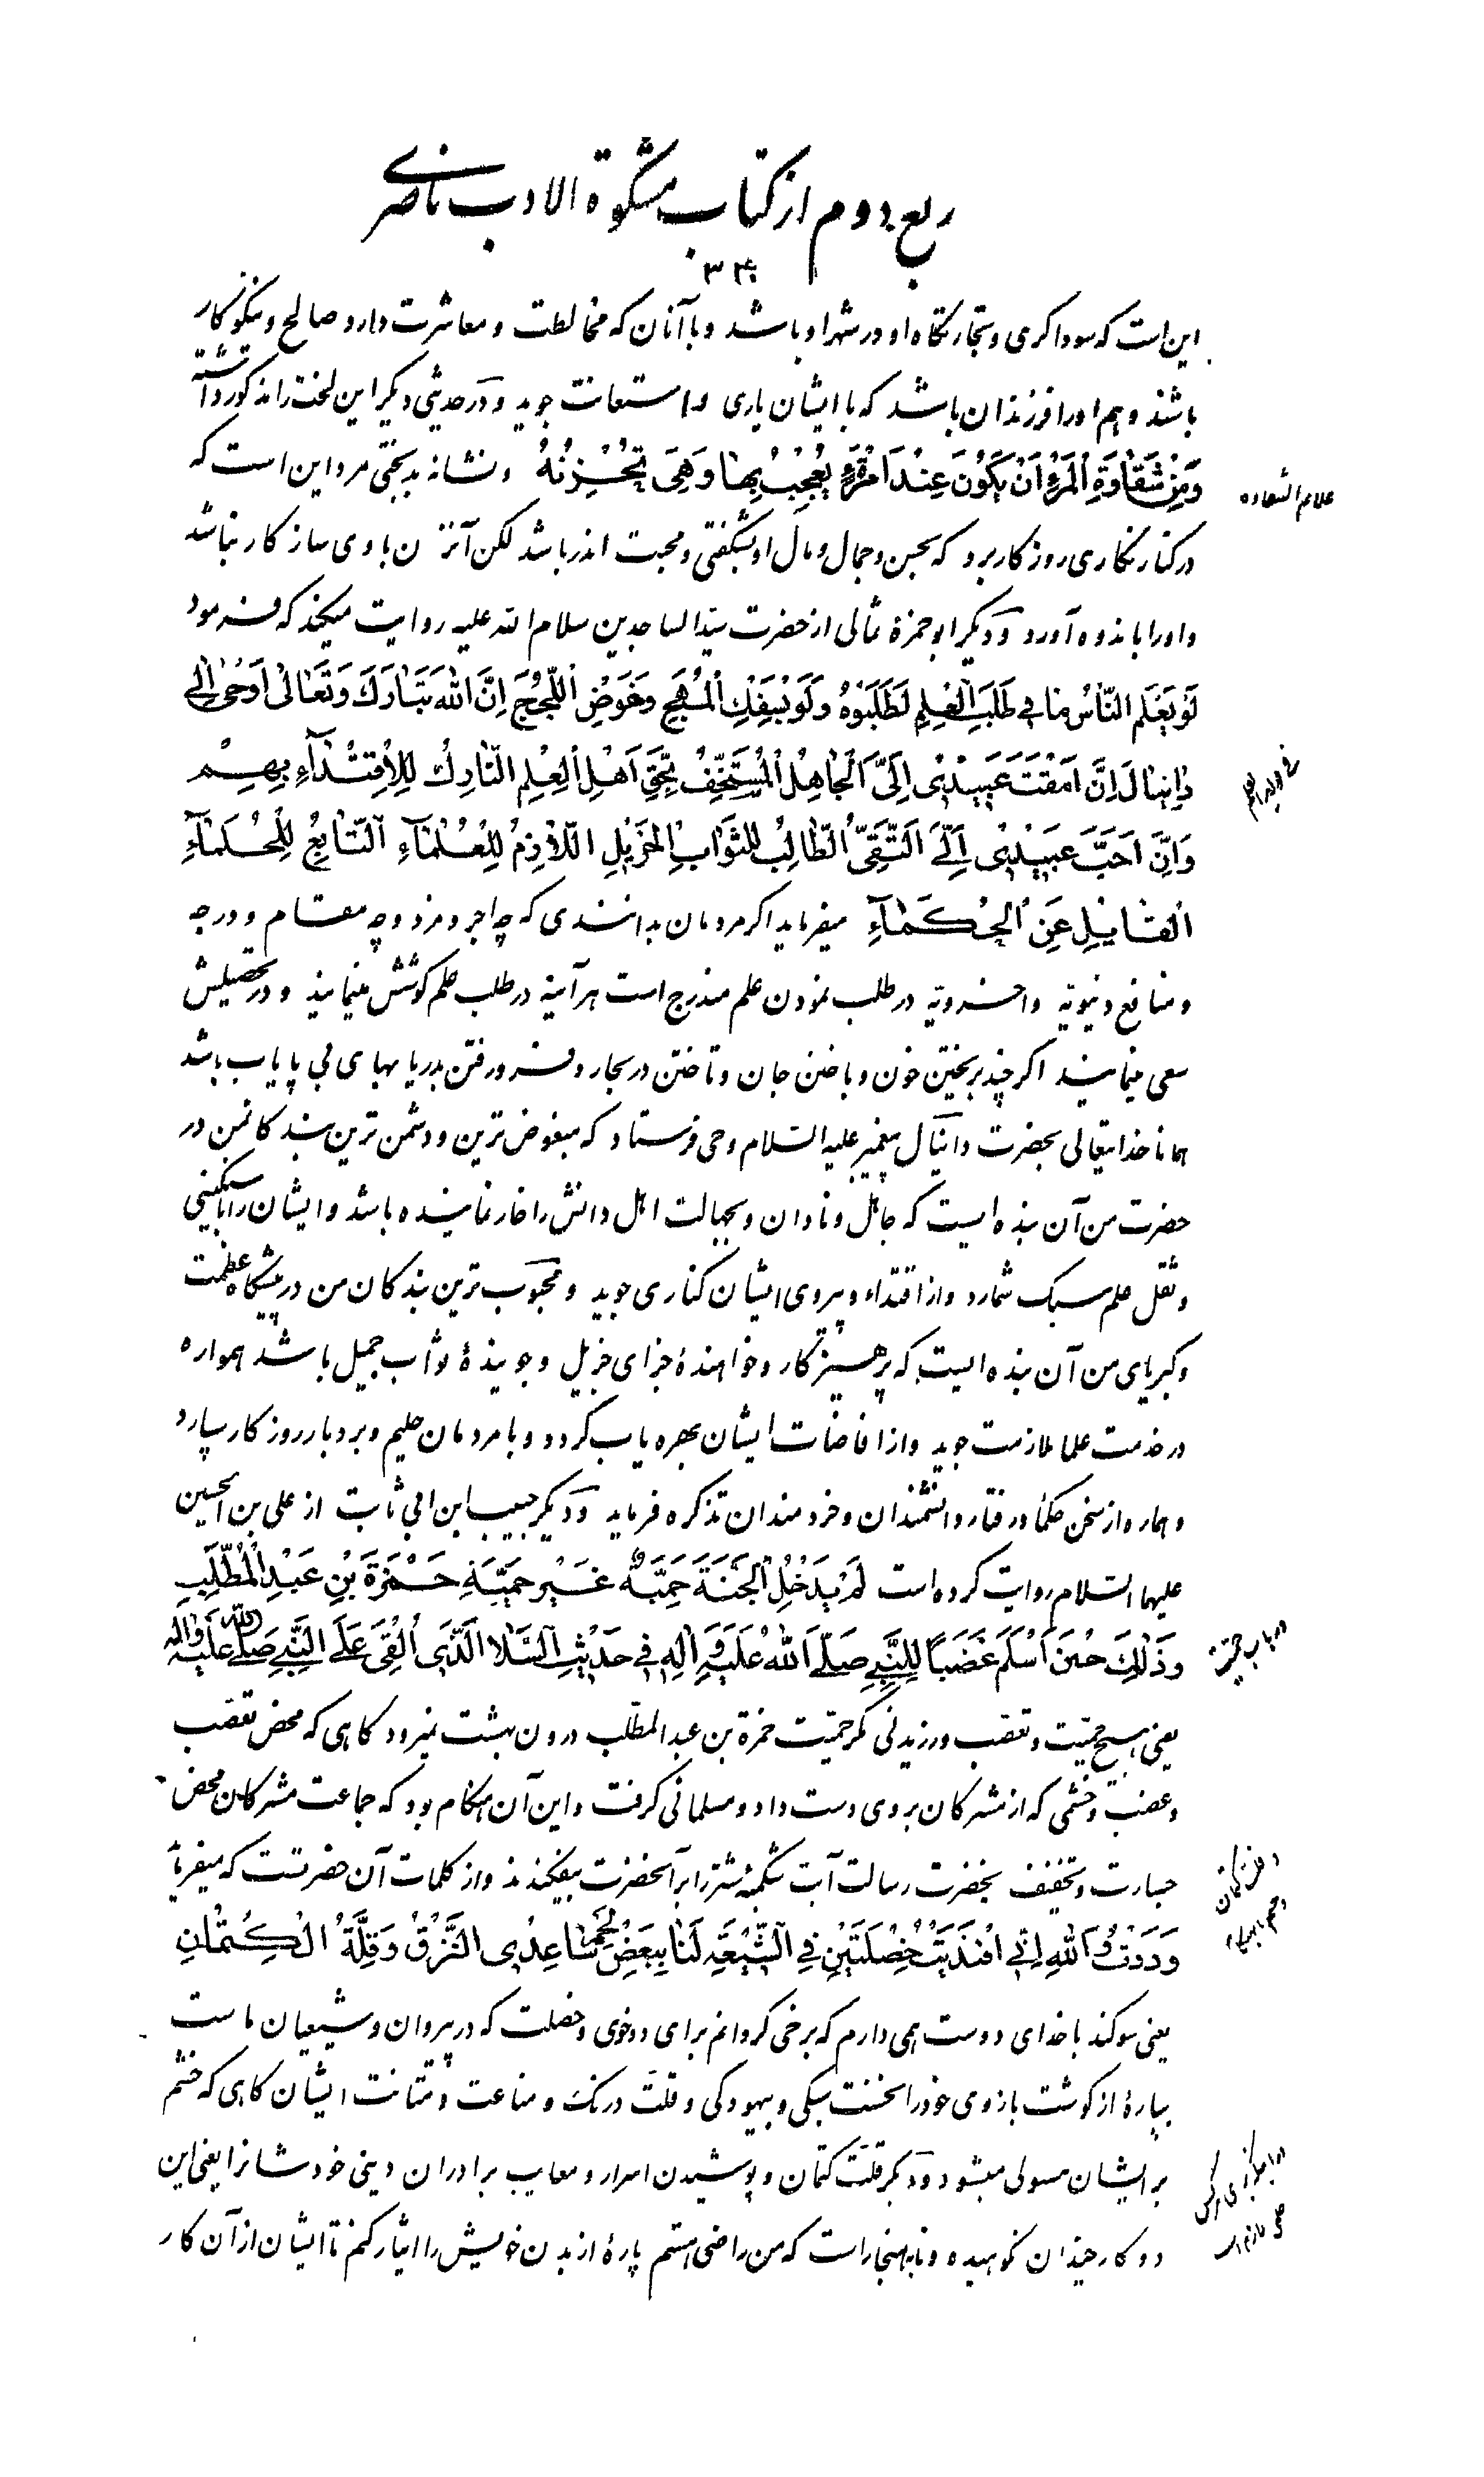 ربع دوم از کتاب مشکوة الادب ناصری
این است که سوداگری و تجارتگاه او در شهر او باشد و با آنان که مخالطت و معاشرت دارد صالح و نیکوکار
باشند و هم او را فرزندان باشد که با ایشان یاری و استعانت جوید و در حدیثی دیگر این لخت را مذکور داشته
وَمِنْ شَقٰاوَةِ الْمَرْءِ اَنْ یَکُونَ عِنْدَ امْرَءَةٍ یُعْجِبُ بِهٰا وَهِیَ تَحْزِنُهُ و نشانه بدبختی مرد این است که
علایم السعاده
در کنار نگاری روزگار برد که بحسن و جمال و مال او بشگفتی و محبت اندر باشد لکن آنزن با وی سازگار نباشد
و او را باندوه آورد و دیگر ابو حمزهٔ ثمالی از حضرت سید الساجدین سلام الله علیه روایت میکند که فرمود
لَوْ یَعْلَمُ النّٰاسُ مٰا فِی طَلَبِ الْعِلْمِ لَطَلَبُوهُ وَلَوْ بِسَفْكِ الْمُهَجِ وَخَوْضِ اللُّجَجِ اِنَّ اللهَ تَبٰارَكَ وَتَعٰالیٰ اَوْحیٰ اِلیٰ
دٰانِیٰالَ اِنَّ اَمْقَتَ عَبِیدِی اِلَیَّ الْجٰاهِلُ الْمُسْتَخِفُّ بِحَقِّ اَهْلِ الْعِلْمِ التّٰارِكُ لِلْاِقْتِدٰآءِ بِهِمْ
وَاِنَّ اَحَبَّ عَبِیدِی اِلَیَّ التَّقِیُّ الطّٰالِبُ لِلثَّوٰابِ الْجَزِیلِ اللّٰازِمُ لِلْعُلَمٰآءِ التّٰابِعُ لِلْحُلَمٰآءِ
الْقٰابِلُ عَنِ الْحُکَمٰآءِ میفرماید اگر مردمان بدانندی که چه اجر و مزد و چه مقام و درجه
و منافع دنیویه و اخرویه در طلب نمودن علم مندرج است هرآینه در طلب علم کوشش مینمایند و در تحصیلش
سعی مینمایند اگر چند بریختن خون و باختن جان و تاختن در بحار و فرو رفتن بدریاهای بی پایاب باشد
همانا خدایتعالی بحضرت دانیال پیغمبر علیه السلام وحی فرستاد که مبغوض ترین و دشمن ترین بندکانمن در
حضرت من آن بنده ایست که جاهل و نادان و بجهالت اهل دانش را خوار نماینده باشد و ایشان را بسنکینی
و ثقل علم سبک شمارد و از اقتداء و پیروی ایشان کناری جوید و محبوب ترین بندکان من در پیشکاه عظمت
و کبریای من آن بنده ایست که پرهیزکار و خواهندهٔ جزای جزیل و جویندهٔ ثواب جمیل باشد همواره
در خدمت علما ملازمت جوید و از افاضات ایشان بهره یاب کردد و با مردمان حلیم و بردبار روزکار سپارد
و هماره از سخن حکما و رفتار دانشمندان و خردمندان تذکره فرماید و دیگر حبیب ابن ابی ثابت از علی بن الحسین
علیهما السلام روایت کرده است لَمْ یَدْخُلِ الْجَنَّةَ حَمِیَّةٌ غَیْرُ حَمِیَّةِ حَمْزَةَ بْنِ عَبْدِ الْمُطَّلِبِ
وَذٰلِكَ حِینَ اَسْلَمَ غَضَبًا لِلنَّبِیِّ صَلَّی اللهُ عَلَیْهِ وَاٰلِهِ فِی حَدِیثِ السَّلَا الَّذِی اُلْقِیَ عَلَی النَّبِیِّ صَلَّی اللهُ عَلَیْهِ وَاٰلِهِ
در باب حمیت
یعنی هیچ حمیت و تعصب ورزیدنی مکر حمیت حمزة بن عبد المطلب درون بهشت نمیرود کاهی که محض تعصب
و غضب و خشمی که از مشرکان بر وی دست داد و مسلمانی کرفت و این آن هنکام بود که جماعت مشرکان محض
جسارت و تخفیف بحضرت رسالت آیت شکمبهٔ شتر را بر آنحضرت بیفکندند و از کلمات آن حضرتست که میفرماید
وَدَدْتُ وَاللهِ اِنِّی افْتَدَیْتُ خِصْلَتَیْنِ فِی الشِّیعَةِ لَنٰا بِبَعْضِ لَحْمِ سٰاعِدِی النَّزْقُ وَقِلَّةُ الْکِتْمٰانِ
یعنی سوکند با خدای دوست همی دارم که برخی کردانم برای دو خوی و خصلت که در پیروان و شیعیان ماست
بپارهٔ از کوشت بازوی خود را نخست سبکی و بیهودکی و قلت درنک و مناعت و متانت ایشان کاهی که خشم
بر ایشان مستولی میشود و دیکر قلت کتمان و پوشیدن اسرار و معایب برادران دینی خودشانرا یعنی این
دو کار چندان نکوهیده و نابهنجار است که من راضی هستم پارهٔ از بدن خویش را ایثار کنم تا ایشان از آن کار